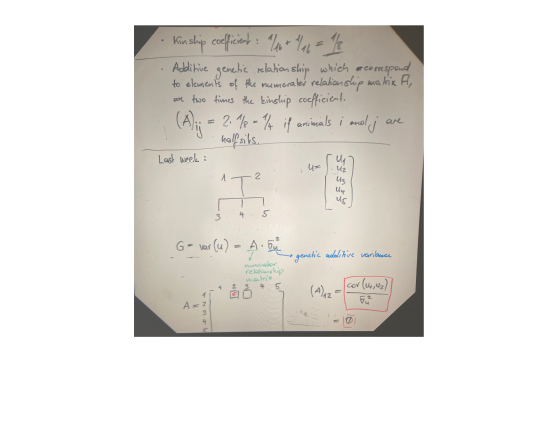 • Kinship coefficient: 1/16 + 1/16 = 1/8
• Additive genetic relationship which correspond
to elements of the numerator relationship matrix A,
are two times the kinship coefficient.
(A)ij = 2 · 1/8 = 1/4 if animals i and j are
halfsibs.
Last week:
1 2
3 4 5
u = [u1 u2 u3 u4 u5]
G = var(u) = A · σu²
genetic additive variance
numerator
relationship
matrix
1 2 3 4 5
A = 1 2 3 4 5
(A)12 = cov(u1,u2) / σu²
= 0